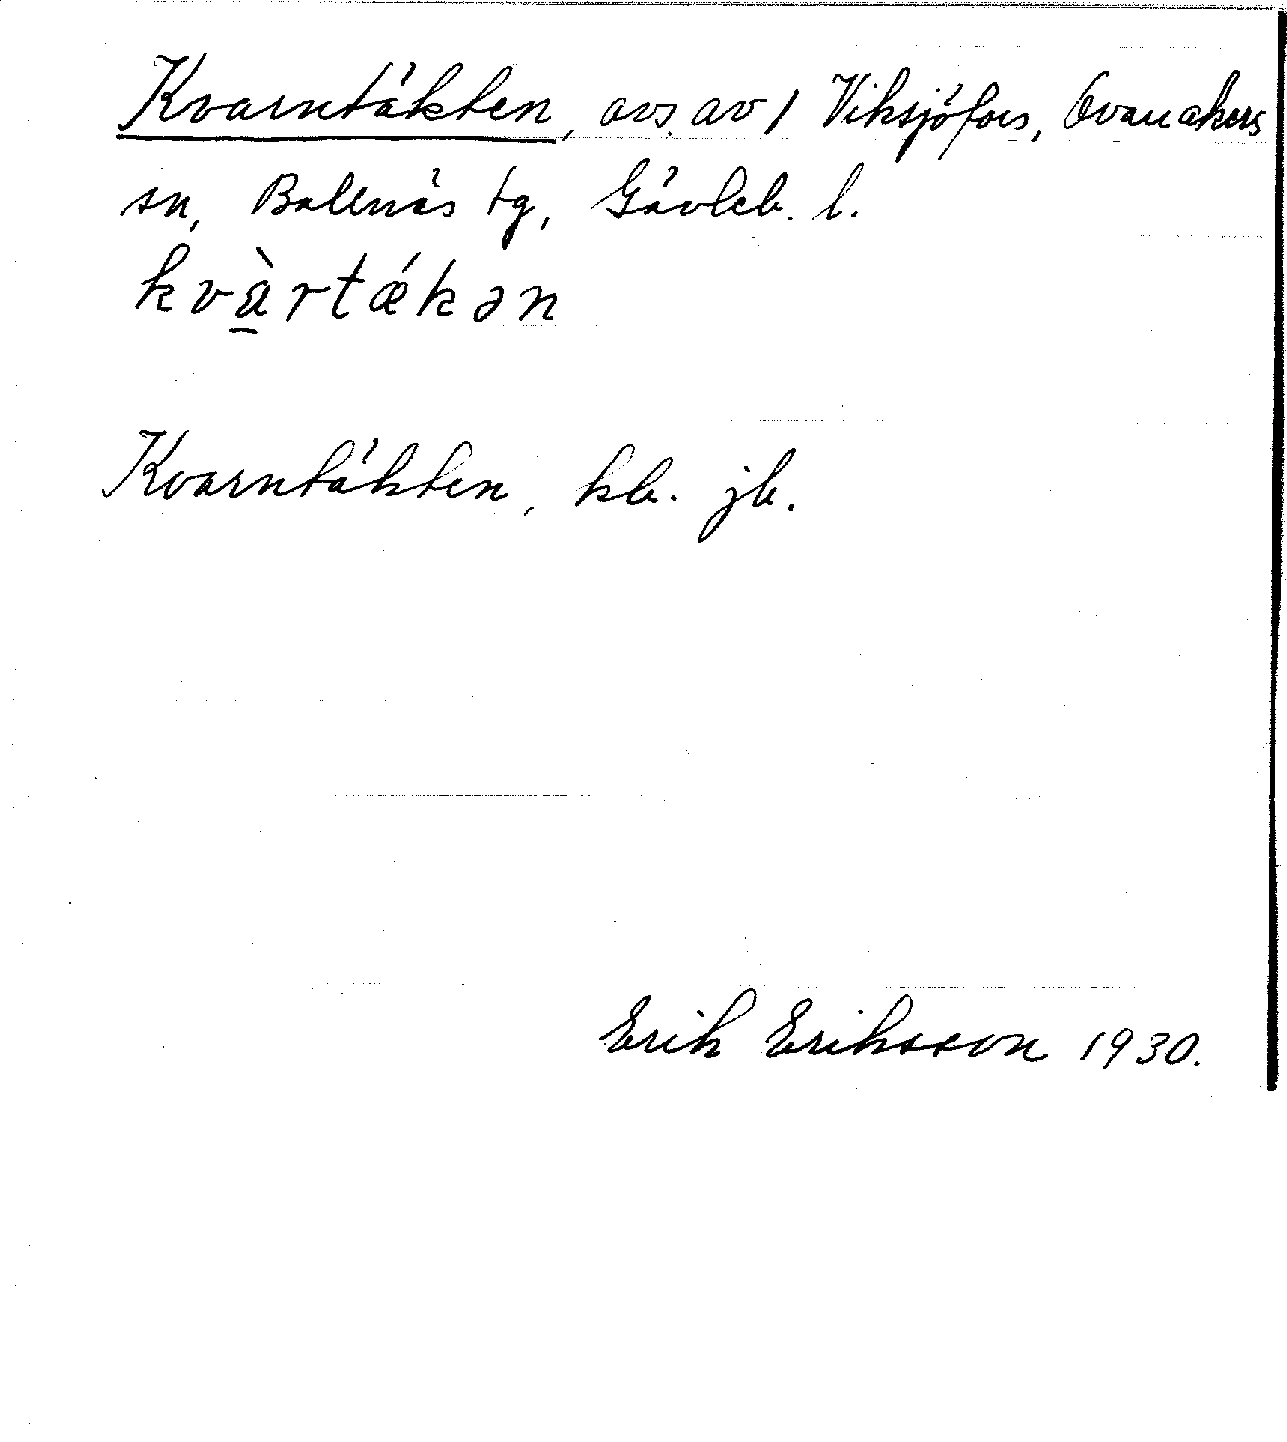 Kvarntäkten, avs. av 1 Viksjöfors, Ovanåkers
sn, Bollnäs tg, Gävleb. l.
kvà̱rtǽkən
Kvarntäkten, kb. jb.
Erik Eriksson 1930.